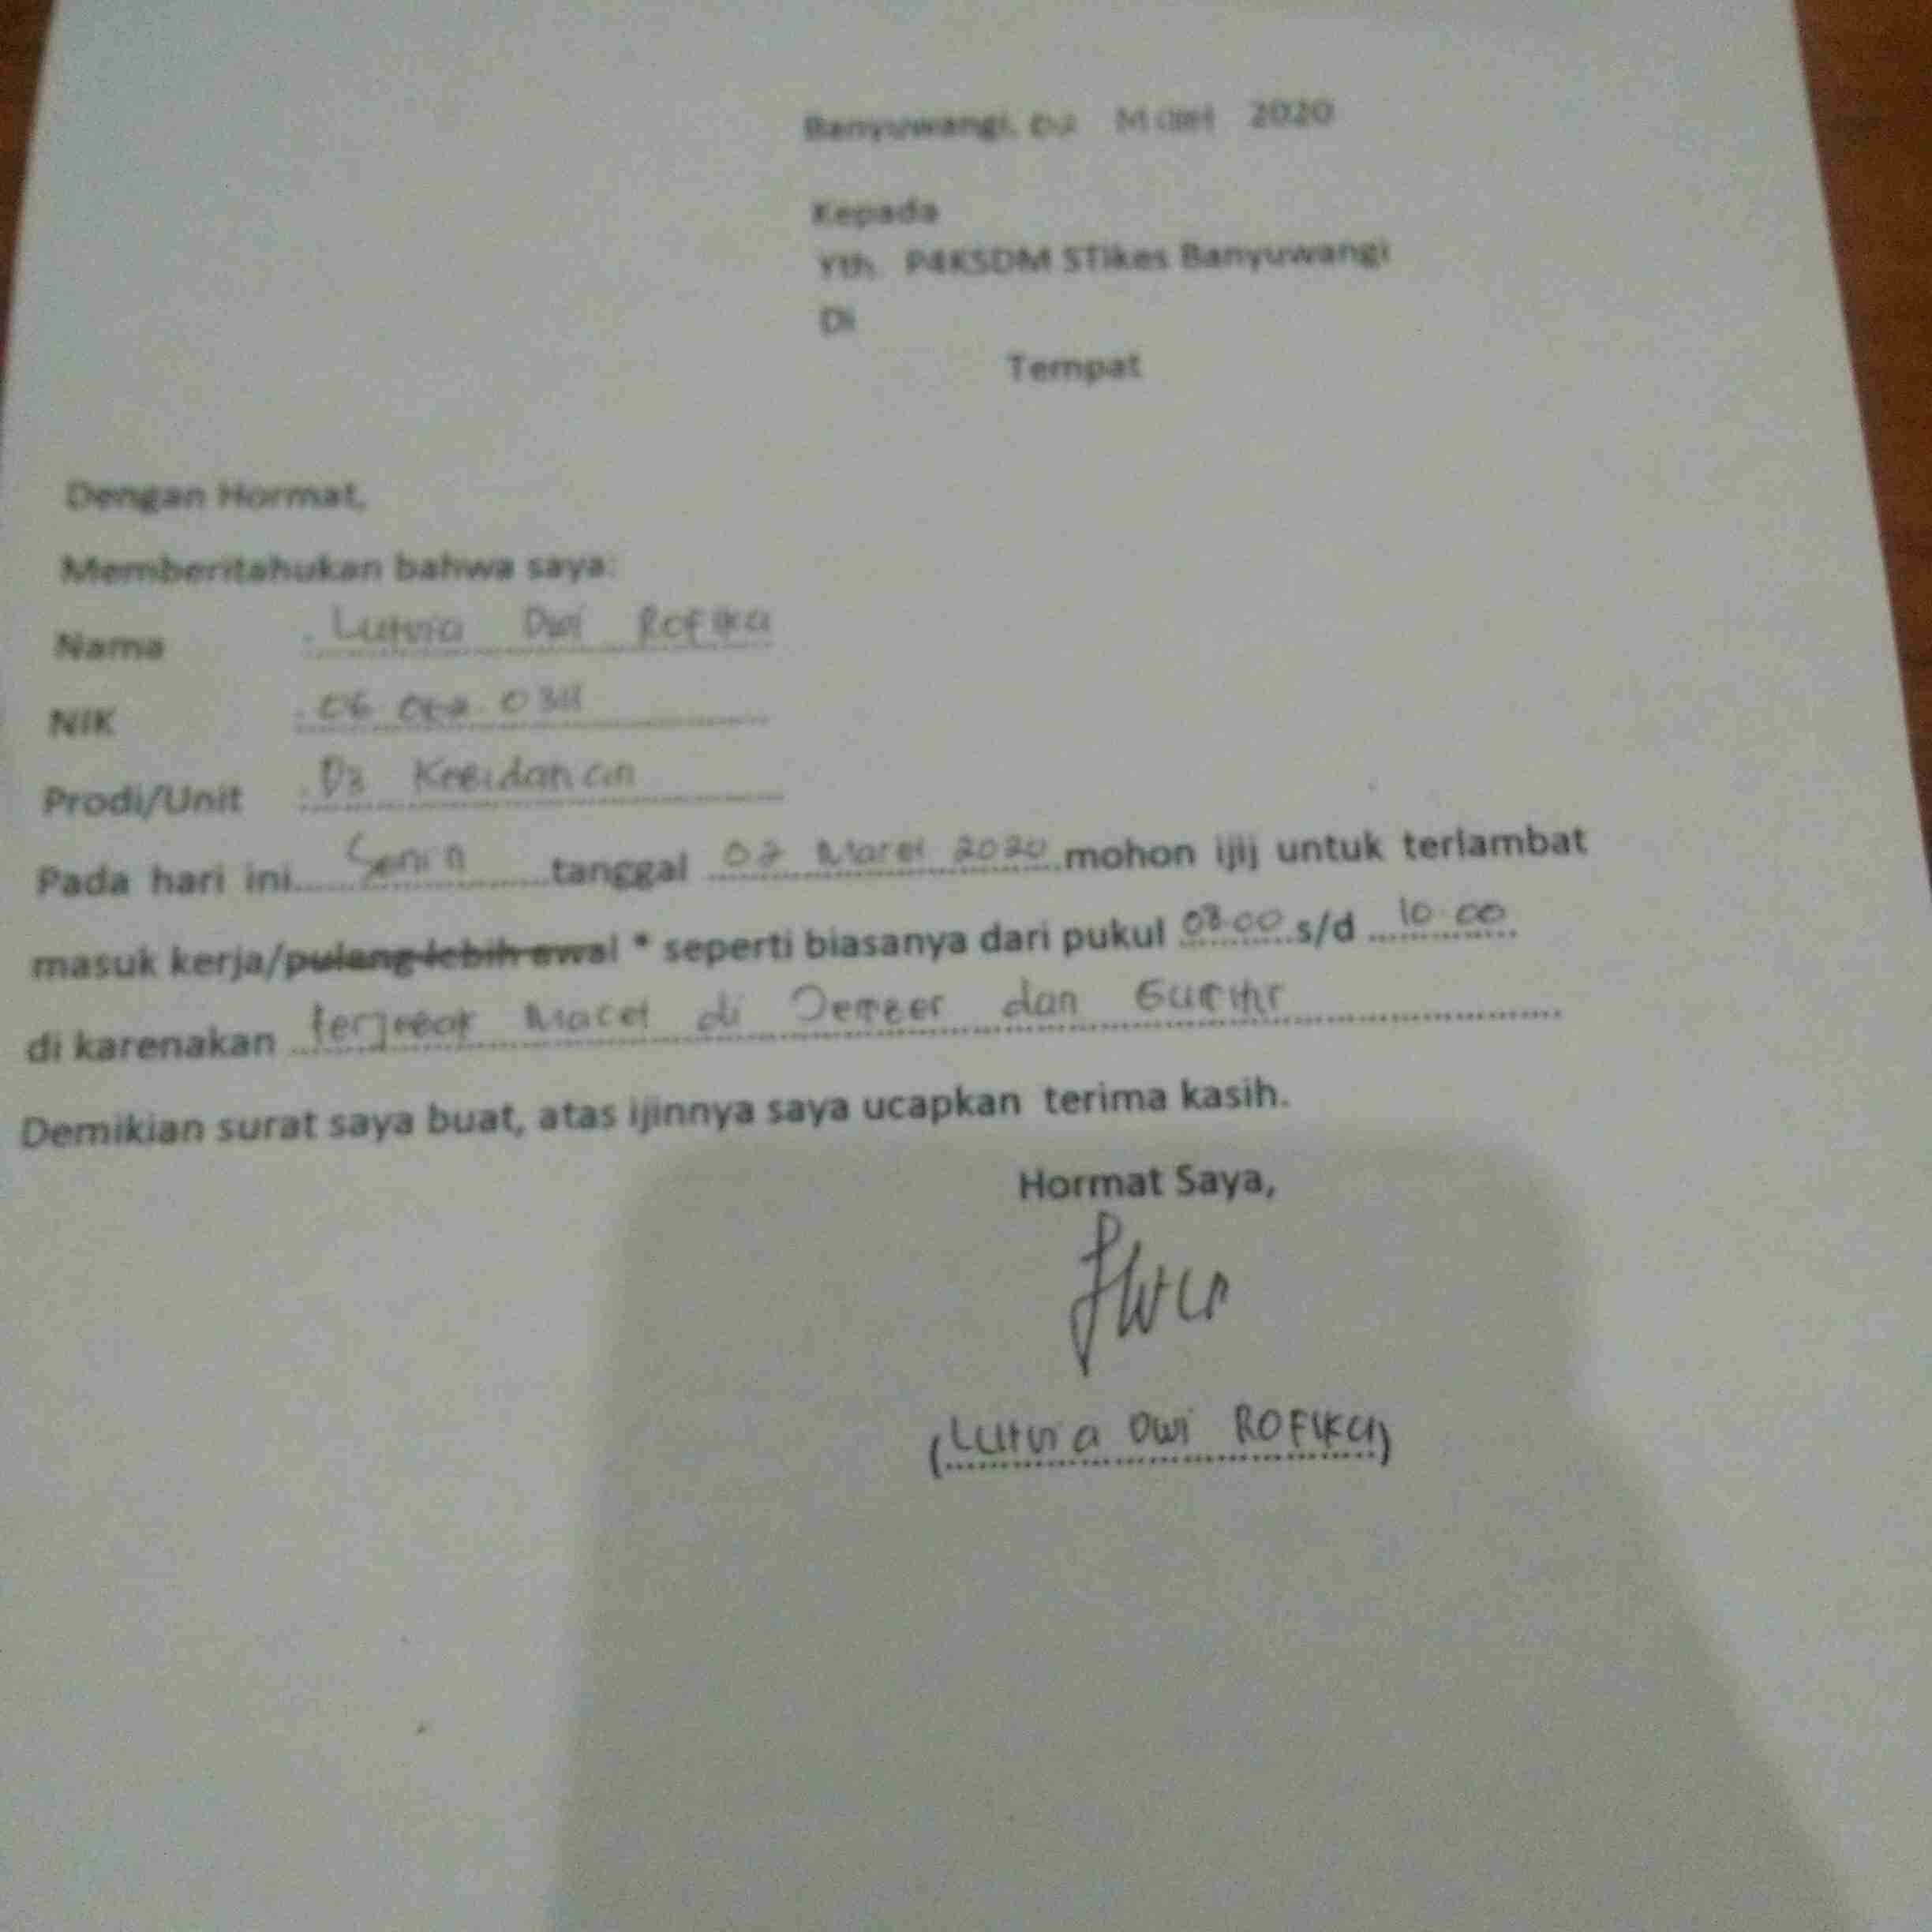 Banyuwangi, 02 Maret 2020
Kepada
Yth. P4KSDM STikes Banyuwangi
Di
Tempat
Dengan Hormat,
Memberitahukan bahwa saya:
Nama : Lutvia Dwi Rofika
NIK : 06. 0311
Prodi/Unit : D3 Kebidanan
Pada hari ini Senin tanggal 02 Maret 2020 mohon ijij untuk terlambat
masuk kerja/pulang lebih awal * seperti biasanya dari pukul 08.00 s/d 10.00
di karenakan terjebak Macet di Jember dan Gumitir
Demikian surat saya buat, atas ijinnya saya ucapkan terima kasih.
Hormat Saya,
(Lutvia Dwi ROFIKA)